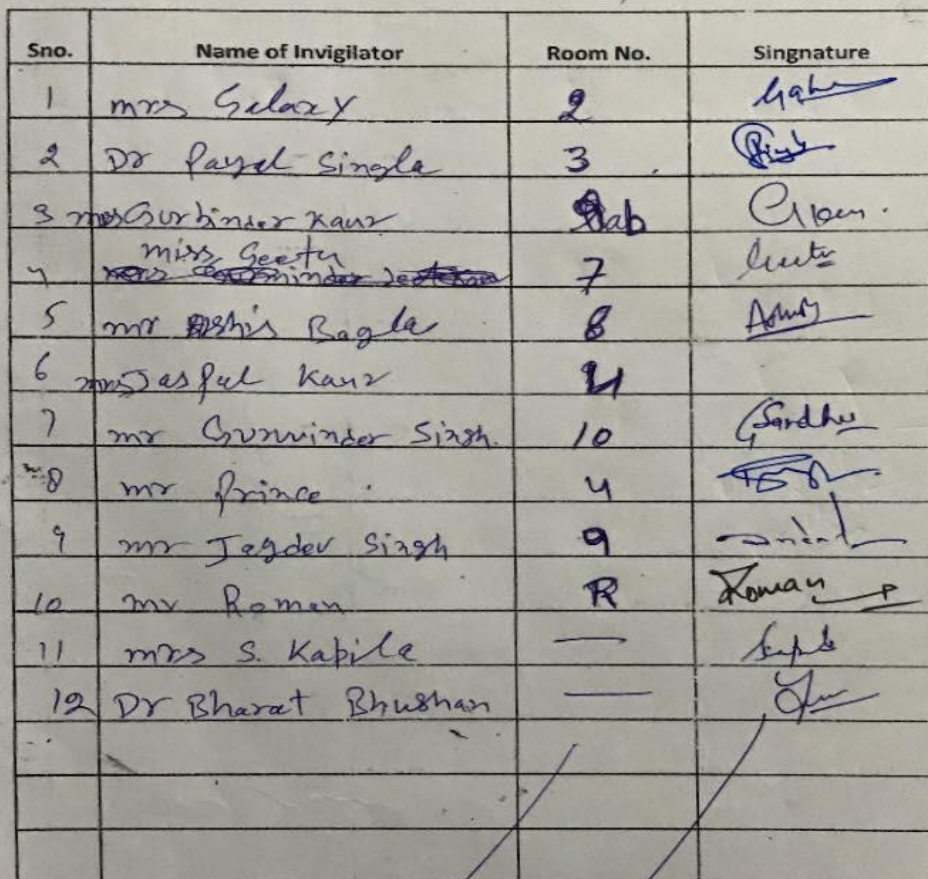 Sno. Name of Invigilator Room No. Singnature
1 mrs Galaxy 2
2 Dr Payal Singla 3
3 mrs Gurbinder Kaur Lab
miss Geetu
4 7 Geetu
5 mr Ashis Bagla 8 Ashis
6 mrs Jaspal Kaur
7 mr Gurwinder Singh. 10 Sandhu
8 mr Prince 4
9 mr Jagdev Singh 9
10 mr Roman R Roman
11 mrs S. Kapila —
12 Dr Bharat Bhushan —